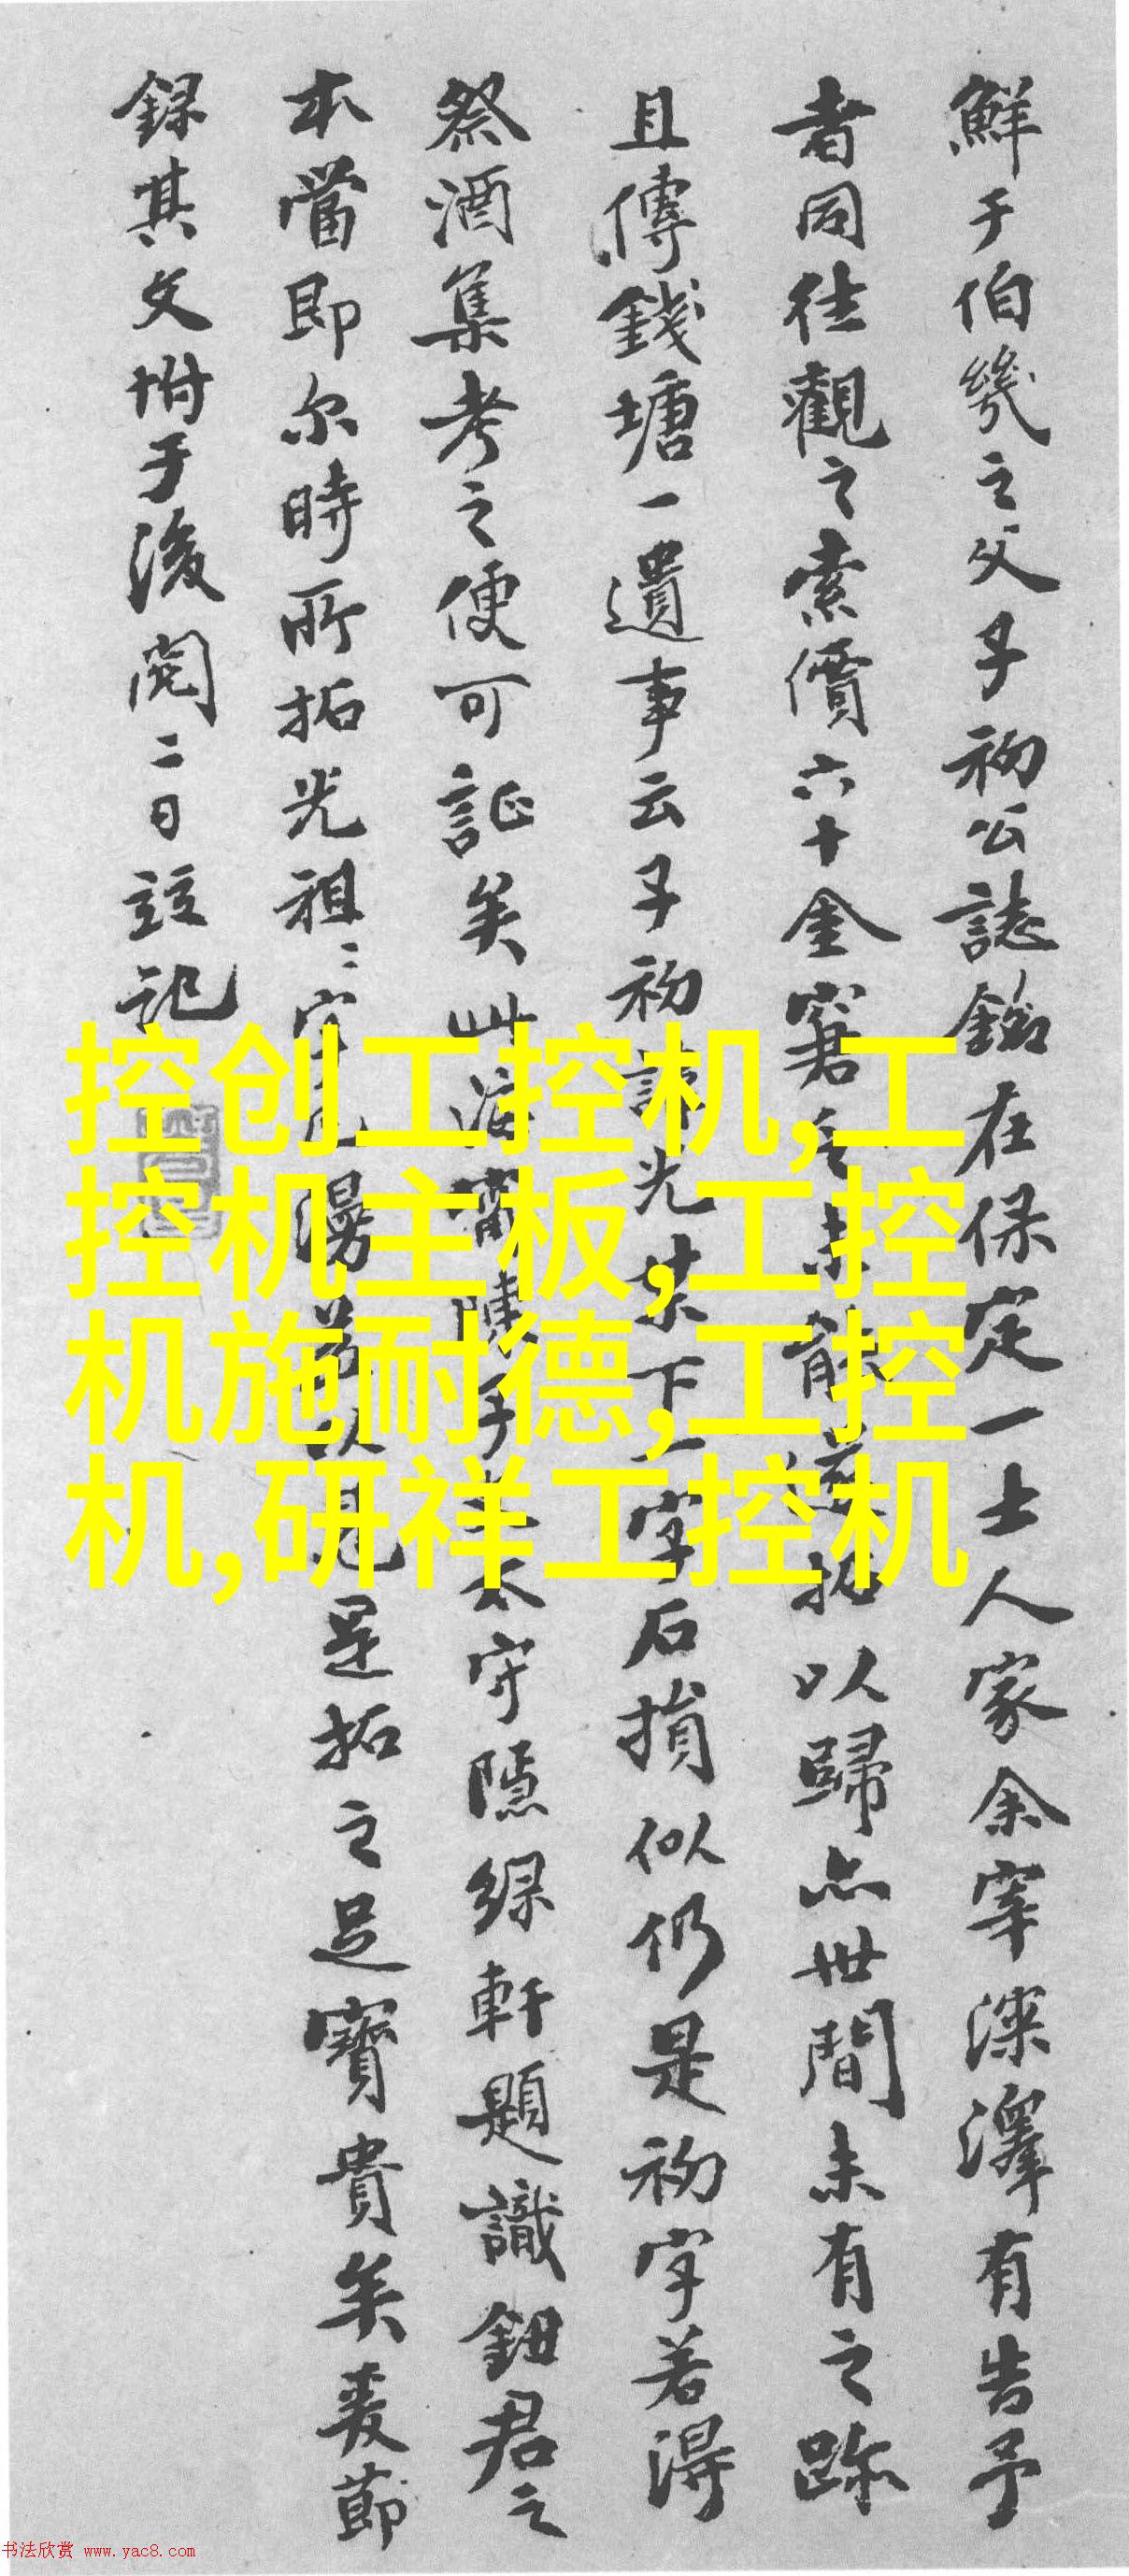 鮮于伯幾之父子初公誌銘在保定一士人家余宰深澤有告予
者同往觀之索價六十金窘未能拓以歸亦世間未有之跡
且傳錢塘一遺事云子初諱光某下一字石損似仍是初字若得
祭酒集考之便可証矣此海甯陳子太守隱綠軒題識鈕君之
本當即尔時所拓光祖二字漫以是拓之足寶貴矣爰節
錄其文坿于後閏二日記
控创工控机,工
控机主板,工控
机施耐德,工控
机,研祥工控机
书法欣赏 www.yac8.com